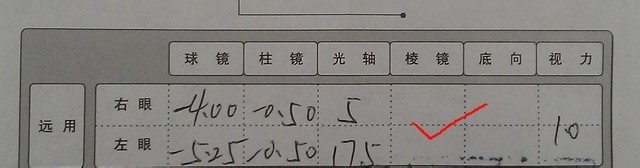 球镜 柱镜 光轴 棱镜 底向 视力
远用
右眼 -4.00 -0.50 5
1.0
左眼 -5.25 -0.50 17.5